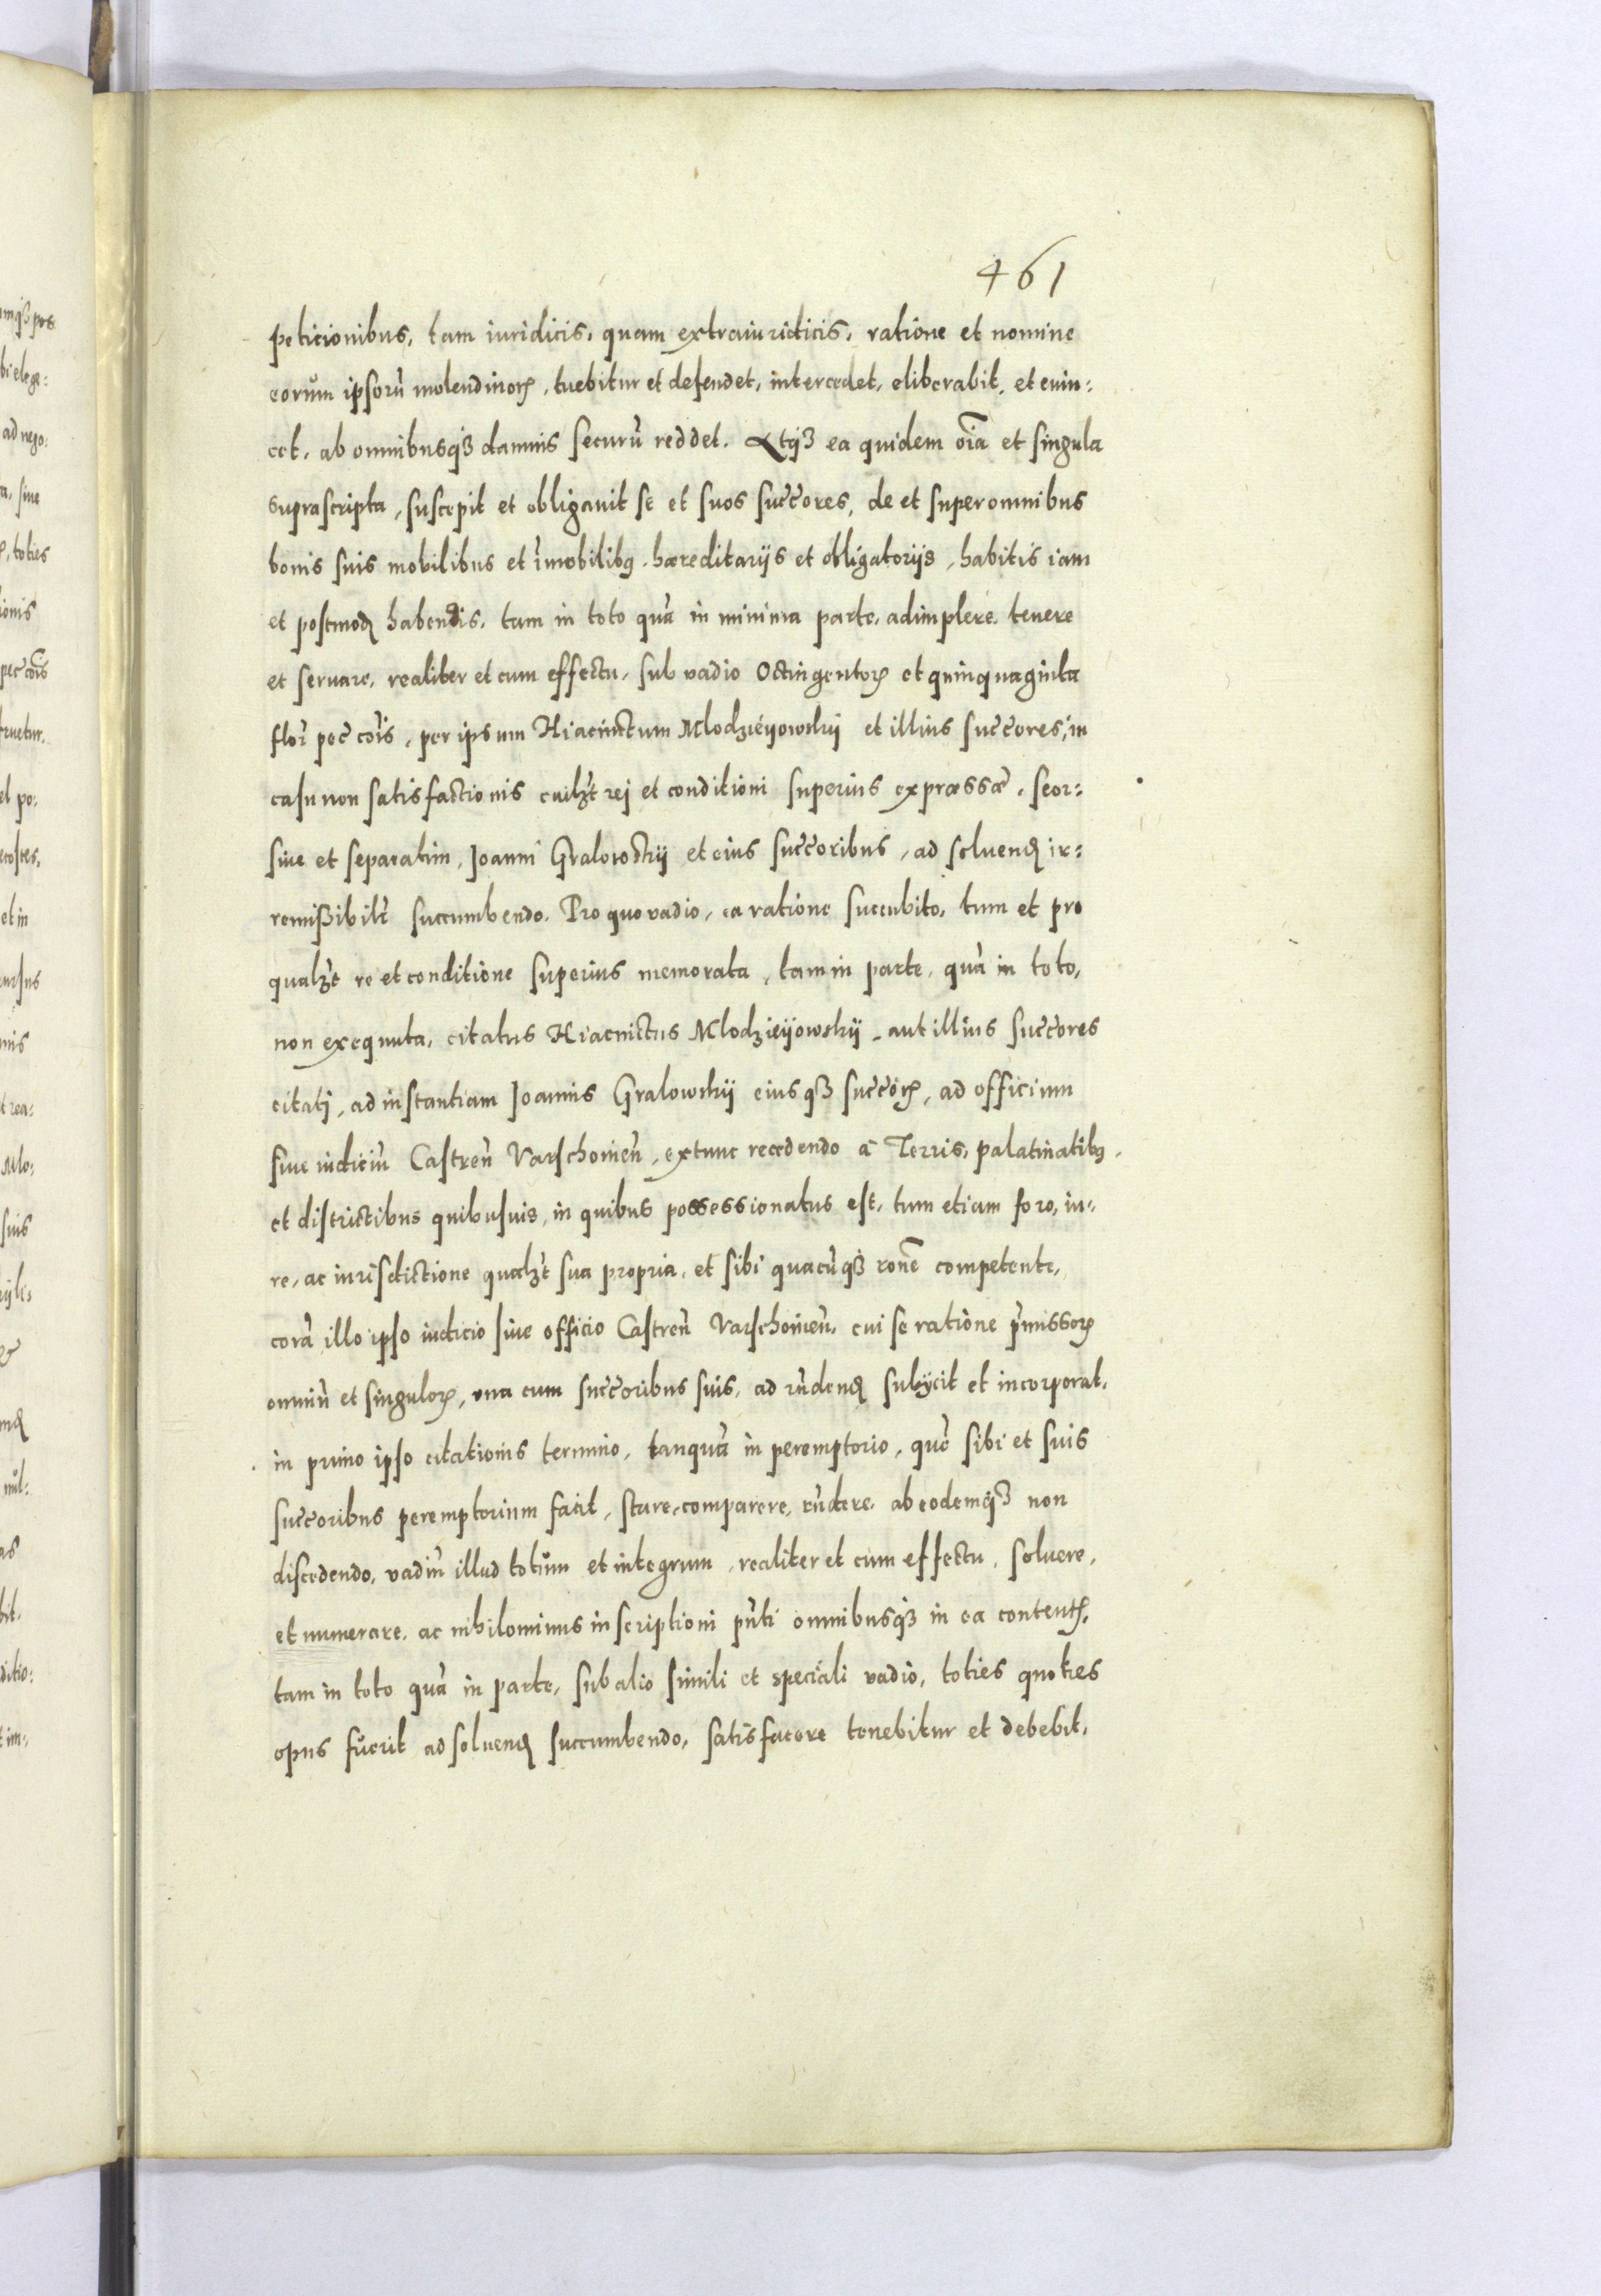 461
peticionibus, tam iuridicis, quam extraiuridicis, ratione et nomine
eorum ipsorū molendinorꝝ, tuebitur et defendet, intercedet, eliberabit, et euin:
cet, ab omnibusqꝫ damnis securū reddet. Atqꝫ ea quidem oīa et singula
suprascripta, suscepit et obligauit se et suos succ̄ores, de et super omnibus
bonis suis mobilibus et īmobilibꝯ, hæreditarijs et obligatorijs, habitis iam
et postmodꝫ habendis, tam in toto quā in minima parte, adimplere, tenere
et seruare, realiter et cum effectu, sub vadio Octingentorꝝ et quinquaginta
flor̄ pec̄ cōis, per ipsum Hiacinctum Mlodzieÿowskÿ et illius succ̄ores, in
casu non satisfactionis cuilꝫt̄ rej et conditioni superius expræssæ, seor:
siue et separatim, Joanni Gralowskÿ et eius succ̄oribus, ad soluendꝫ ir:
remißibilt̄ succumbendo. Pro quo vadio, ea ratione succubito, tum et pro
qualꝫt̄ re et conditione superius memorata, tam in parte, quā in toto,
non exequuta, citatus Hiacinctus Mlodzieÿowskÿ, aut illius succ̄ores
citatj, ad instantiam Joannis Gralowskÿ eiusqꝫ succ̄orꝝ, ad officium
siue iudiciū Castreñ Varschouieñ, extunc recedendo à Terris, palatinatibꝯ,
et districtibus quibusuis, in quibus possessionatus est, tum etiam foro, iu:
re, ac iurisdictione qualꝫt̄ sua propria, et sibi quacūqꝫ rōne competente,
corā illo ipso iudicio siue officio Castreñ Varschouieñ, cui se ratione p̄missorꝝ
omniū et singulorꝝ, vna cum succ̄oribus suis, ad rn̄dendꝫ subÿcit et incorporat,
in primo ipso citationis termino, tanquā in peremptorio, quē sibi et suis
succ̄oribus peremptorium facit, stare, comparere, rn̄dere, ab eodemqꝫ non
discedendo, vadiū illud totum et integrum, realiter et cum effectu, soluere,
et numerare, ac nihilominus inscriptioni pn̄ti omnibusqꝫ in ea contentꝭ,
tam in toto quā in parte, sub alio simili et speciali vadio, toties quoties
opus fuerit ad soluendꝫ succumbendo, satisfacere tenebitur et debebit,